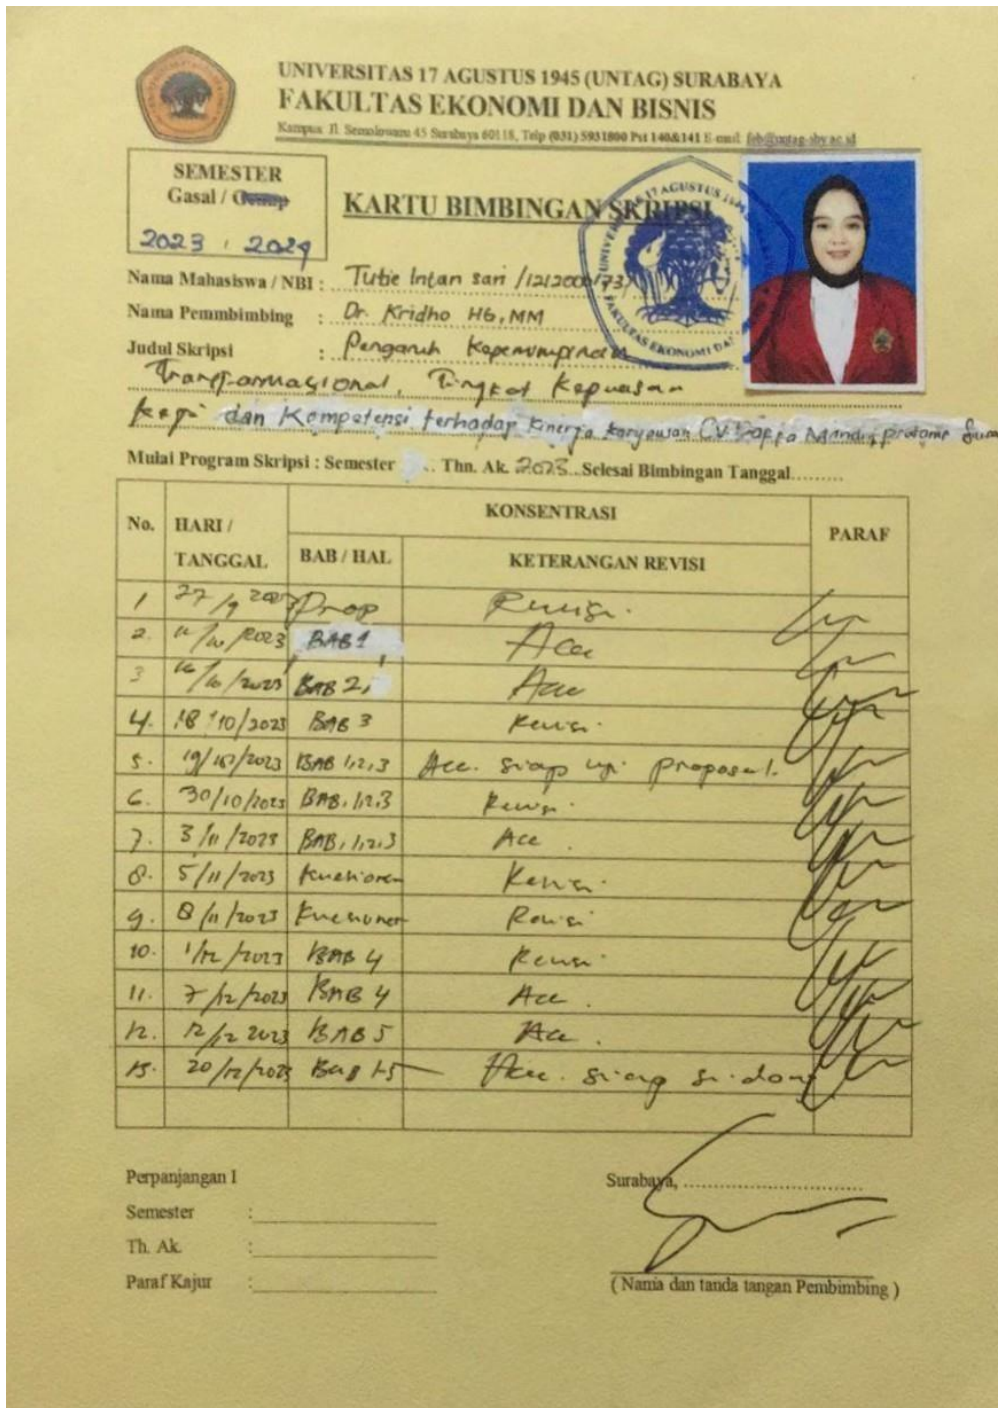 UNIVERSITAS 17 AGUSTUS 1945 (UNTAG) SURABAYA
FAKULTAS EKONOMI DAN BISNIS
Kampus: Jl. Semolowaru 45 Surabaya 60118, Telp (031) 5931800 Pst 140&141 E-mail: feb@untag-sby.ac.id
SEMESTER
Gasal / Genap
2023 / 2024
KARTU BIMBINGAN SKRIPSI
Nama Mahasiswa / NBI : Tutie Intan Sari /
Nama Pemmbimbing : Dr. Kridho HG, MM
Judul Skripsi : Pengaruh Kepemimpinan
Transformasional, Tingkat Kepuasan
Kerja dan Kompetensi terhadap Kinerja karyawan CV
Mulai Program Skripsi : Semester .. Thn. Ak. 2023.. Selesai Bimbingan Tanggal.........
No. HARI / TANGGAL KONSENTRASI PARAF
BAB / HAL KETERANGAN REVISI
1 27/9 2023 Prop Revisi.
2. /10/2023 BAB 1 Acc
3 /10/2023 BAB 2, Acc
4. 18/10/2023 BAB 3 Revisi.
5. 19/10/2023 BAB 1,2,3 Acc. siap uji proposal.
6. 30/10/2023 BAB. 1,2,3 Revisi.
7. 3/11/2023 BAB. 1,2,3 Acc.
8. 5/11/2023 Kuesioner Revisi.
9. 8/11/2023 Kuesioner Revisi
10. 1/12/2023 BAB 4 Revisi.
11. 7/12/2023 BAB 4 Acc.
12. 12/12 2023 BAB 5 Acc.
13. 20/12/2023 Bab 1-5 Acc. siap sidang
Perpanjangan I
Semester :
Th. Ak. :
Paraf Kajur :
Surabaya, ..............................
( Nama dan tanda tangan Pembimbing )